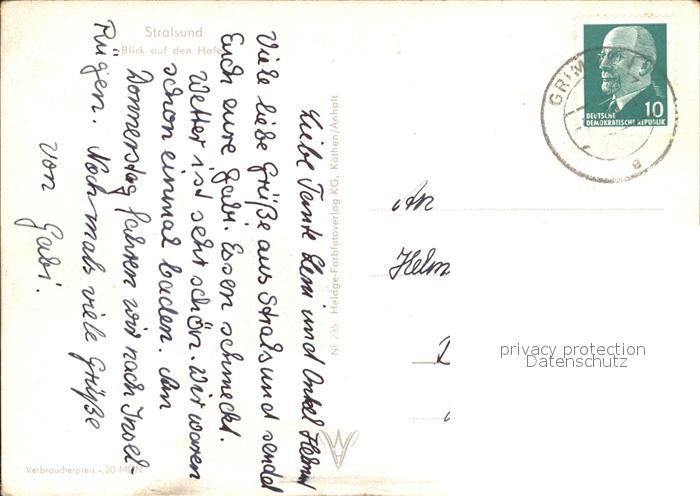 Stralsund
Blick auf den Hafen
Liebe Tante Leni und Onkel Helmut
Viele liebe Grüße aus Stralsund sendet
Euch eure Gabi. Essen schmeckt.
Wetter ist sehr schön. Wir waren
schon einmal baden. Am
Donnerstag fahren wir nach Insel-
Rügen. Nochmals viele Grüße
von Gabi.
Verbraucherpreis -.20 MDN
NF 235 Heldge-Farbfotoverlag KG, Köthen/Anhalt
DEUTSCHE
DEMOKRATISCHE REPUBLIK
10
a
An
Helm
privacy protection
Datenschutz